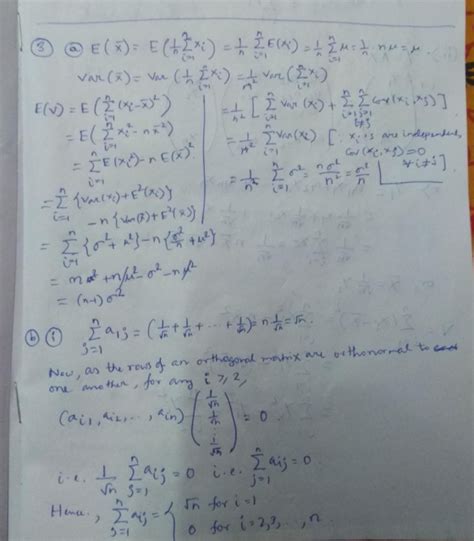 8 (a) E(x̄) = E(1/n Σ_{i=1}^{n} x_i) = 1/n Σ_{i=1}^{n} E(x_i) = 1/n Σ_{i=1}^{n} μ = 1/n · nμ = μ.
Var(x̄) = Var(1/n Σ_{i=1}^{n} x_i) = 1/n² Var(Σ_{i=1}^{n} x_i)
= 1/n² [Σ_{i=1}^{n} Var(x_i) + Σ_{i=1}^{n} Σ_{j=1, i≠j}^{n} Cov(x_i, x_j)]
= 1/n² Σ_{i=1}^{n} Var(x_i) [∵ x_i's are independent,
Cov(x_i, x_j) = 0
∀ i≠j]
= 1/n² Σ_{i=1}^{n} σ² = nσ²/n² = σ²/n
E(V) = E(Σ_{i=1}^{n} (x_i - x̄)²)
= E(Σ_{i=1}^{n} x_i² - n x̄²)
= Σ_{i=1}^{n} E(x_i²) - n E(x̄)²
= Σ_{i=1}^{n} {Var(x_i) + E²(x_i)}
- n {Var(x̄) + E²(x̄)}
= Σ_{i=1}^{n} {σ² + μ²} - n {σ²/n + μ²}
= nσ² + nμ² - σ² - nμ²
= (n-1) σ²
(b) (i) Σ_{j=1}^{n} a_{1j} = (1/√n + 1/√n + ... + 1/√n) = n 1/√n = √n.
Now, as the rows of an orthogonal matrix are orthonormal to
one another, for any i ≥ 2,
(a_{i1}, a_{i2}, ..., a_{in}) (1/√n 1/√n ⋮ 1/√n) = 0
i.e. 1/√n Σ_{j=1}^{n} a_{ij} = 0 i.e. Σ_{j=1}^{n} a_{ij} = 0.
Hence, Σ_{j=1}^{n} a_{ij} = { √n for i = 1
0 for i = 2, 3, ..., n.